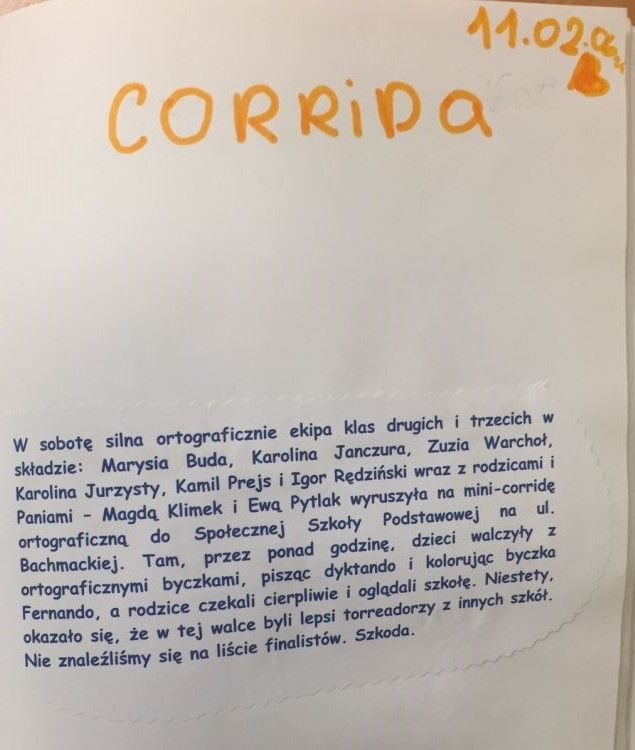 11.02.06r.
CORRiDa
W sobotę silna ortograficznie ekipa klas drugich i trzecich w
składzie: Marysia Buda, Karolina Janczura, Zuzia Warchoł,
Karolina Jurzysty, Kamil Prejs i Igor Rędziński wraz z rodzicami i
Paniami – Magdą Klimek i Ewą Pytlak wyruszyła na mini-corridę
ortograficzną do Społecznej Szkoły Podstawowej na ul.
Bachmackiej. Tam, przez ponad godzinę, dzieci walczyły z
ortograficznymi byczkami, pisząc dyktando i kolorując byczka
Fernando, a rodzice czekali cierpliwie i oglądali szkołę. Niestety,
okazało się, że w tej walce byli lepsi torreadorzy z innych szkół.
Nie znaleźliśmy się na liście finalistów. Szkoda.